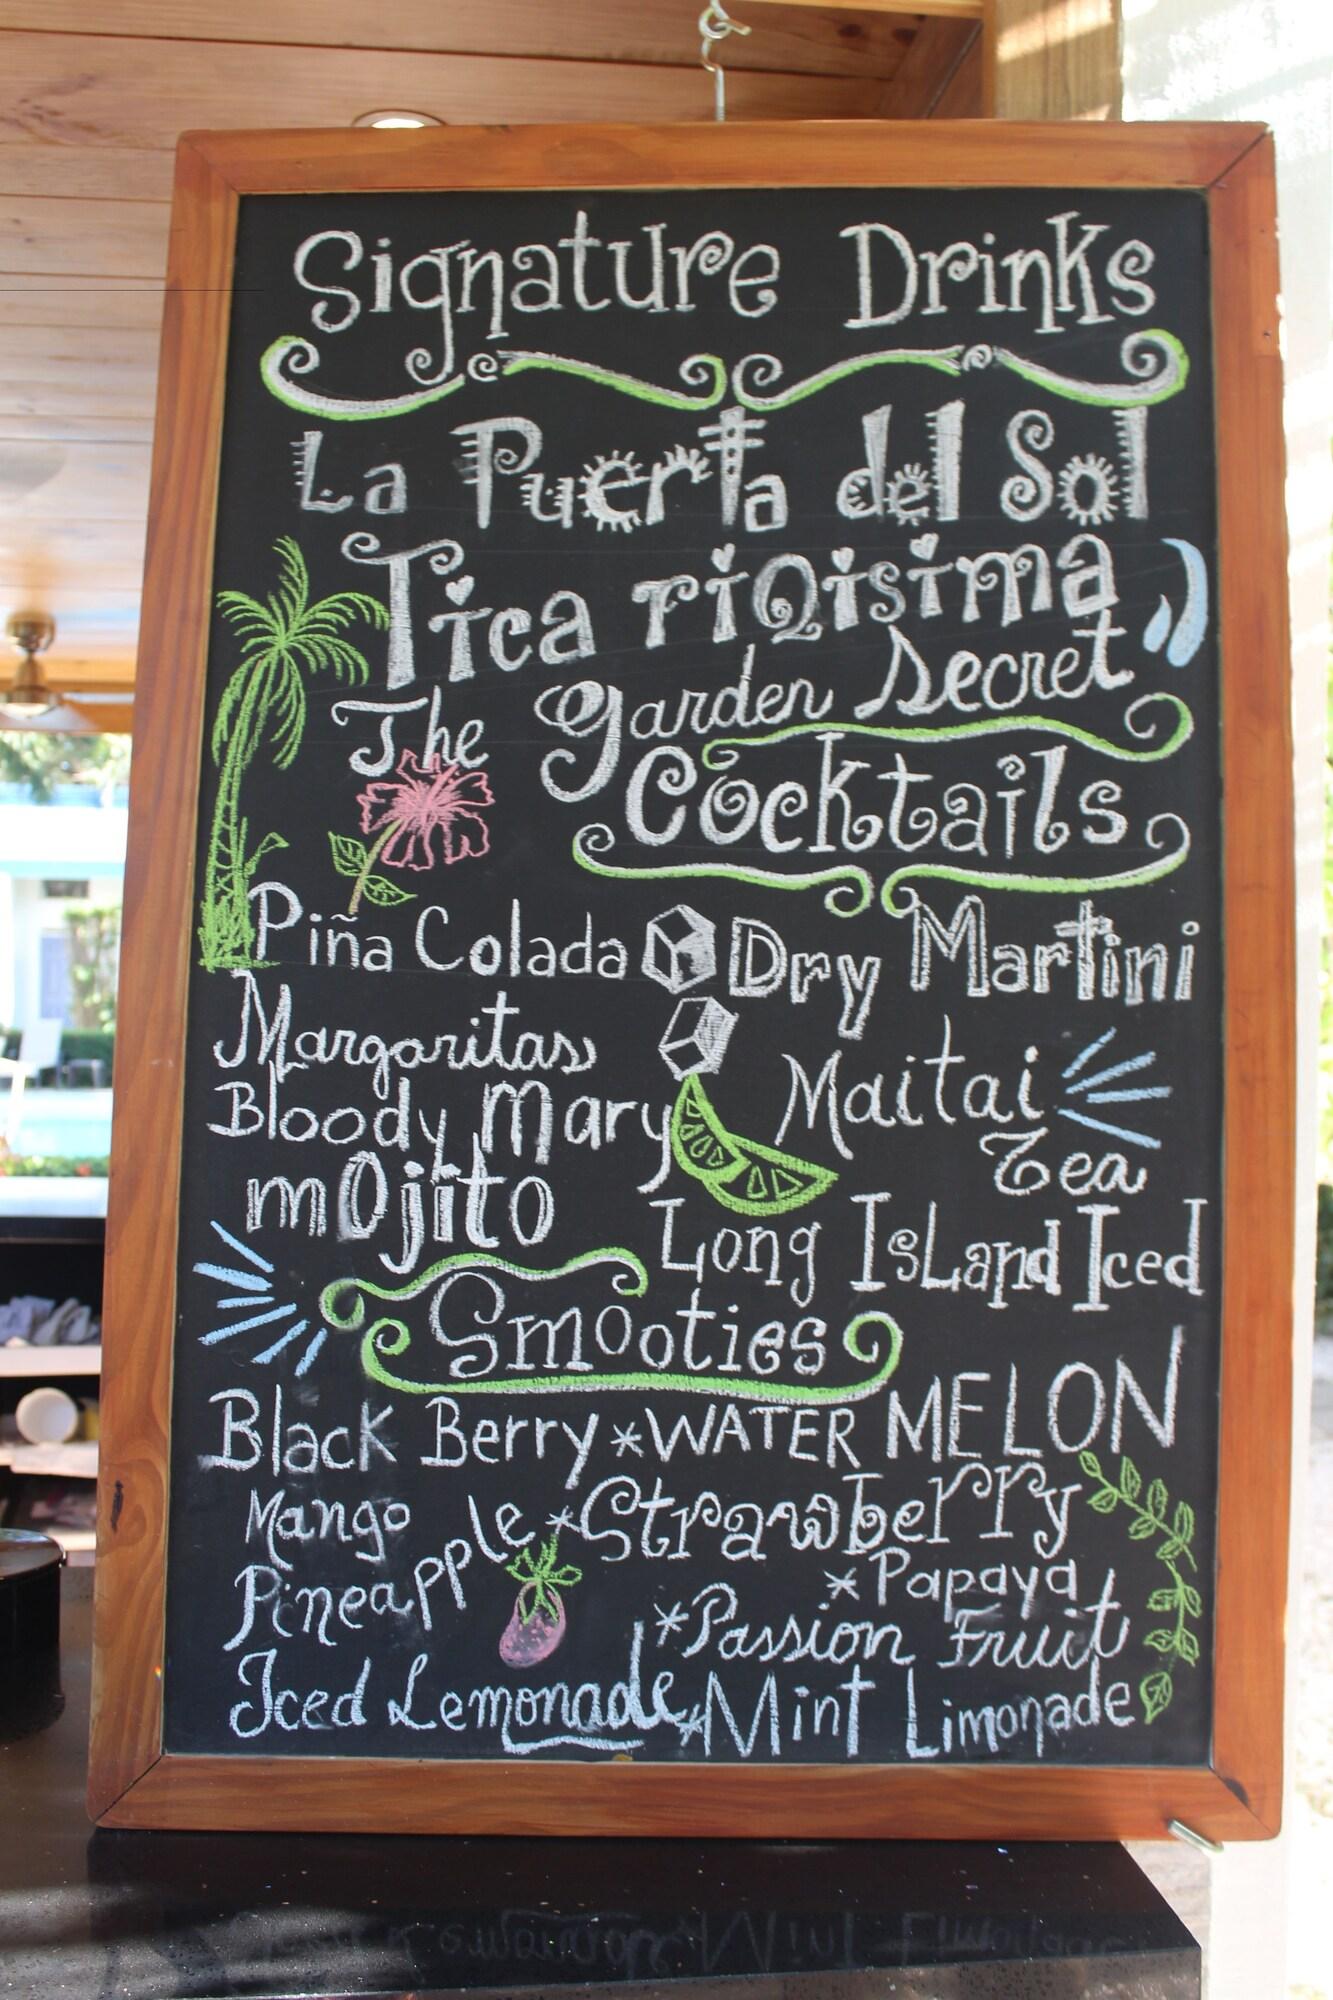 Signature Drinks
La Puerta del Sol
Tica riQisima
The garden secret
Cocktails
Piña Colada Dry Martini
Margaritas Maitai
Bloody Mary Tea
mOjito Long IsLand Iced
Smooties
Black Berry *WATER MELON
Mango *Strawberry
Pineapple *Papaya
*Passion Fruit
Iced Lemonade *Mint Limonade